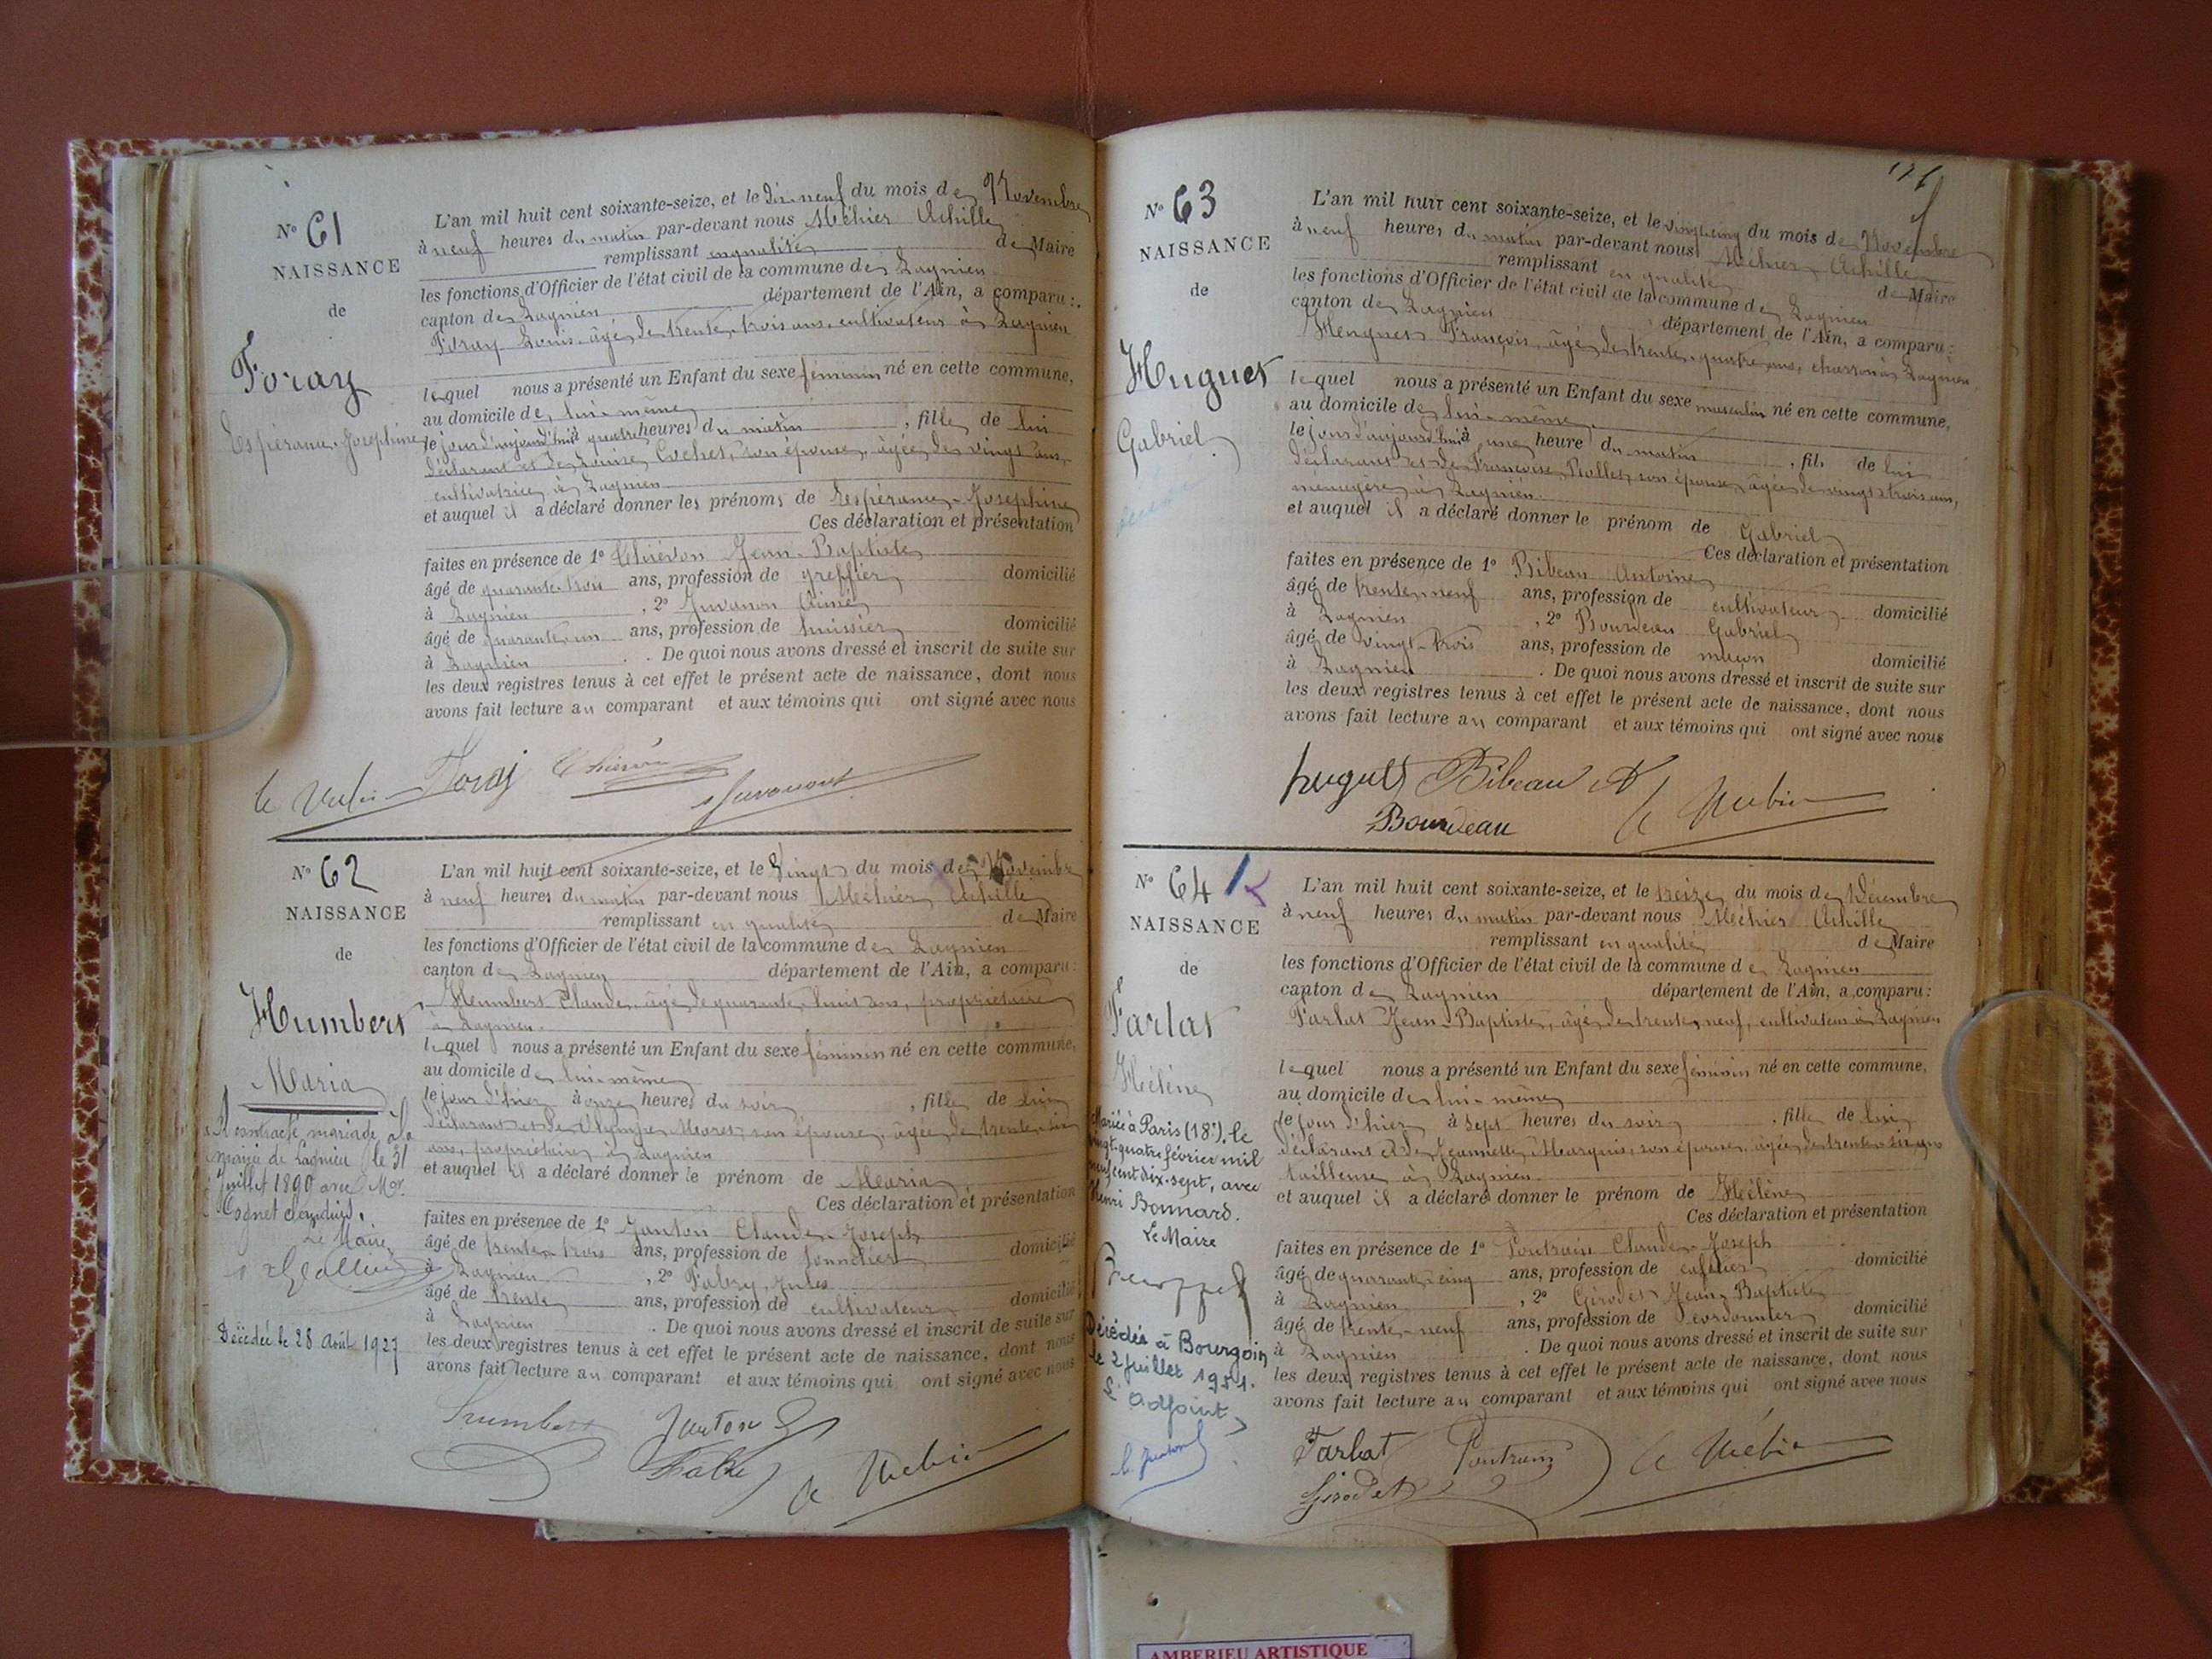 N° 61
NAISSANCE
de
Foray
Espérance-Joséphine
L'an mil huit cent soixante-seize, et le dix-neuf du mois de Novembre
à neuf heures du matin par-devant nous Méhier Achille
remplissant en qualité de Maire
les fonctions d'Officier de l'état civil de la commune de Lagnieu
canton de Lagnieu département de l'Ain, a comparu :
Foray Louis, âgé de trente-trois ans, cultivateur à Lagnieu
lequel nous a présenté un Enfant du sexe féminin né en cette commune,
au domicile de lui-même
le jour d'aujourd'hui à quatre heures du matin , fille de lui
déclarant et de Louise Cochet, son épouse, âgée de vingt ans,
cultivatrice à Lagnieu
et auquel il a déclaré donner les prénoms de Lespérance-Josephine
Ces déclaration et présentation
faites en présence de 1° Jean-Baptiste
âgé de quarante-trois ans, profession de greffier domicilié
à Lagnieu , 2° Juvanon Aimé
âgé de quarante-un ans, profession de huissier domicilié
à Lagnieu . De quoi nous avons dressé et inscrit de suite sur
les deux registres tenus à cet effet le présent acte de naissance, dont nous
avons fait lecture au comparant et aux témoins qui ont signé avec nous
Foray
N° 62
NAISSANCE
de
Humbert
Maria
A contracté mariage à la
mairie de Lagnieu le 31
juillet 1890 avec Mr
Cognet Claudius.
Le Maire
Décédée le 28 Août 1927
L'an mil huit cent soixante-seize, et le Vingt du mois de Novembre
à neuf heures du matin par-devant nous Méhier Achille
remplissant en qualité de Maire
les fonctions d'Officier de l'état civil de la commune de Lagnieu
canton de Lagnieu département de l'Ain, a comparu :
Humbert Claude, âgé de quarante-huit ans, propriétaire
à Lagnieu.
lequel nous a présenté un Enfant du sexe féminin né en cette commune,
au domicile de lui-même
le jour d'hier à onze heures du soir , fille de lui
déclarant et de Olympe son épouse, âgée de trente-six
ans, propriétaire à Lagnieu
et auquel il a déclaré donner le prénom de Maria
Ces déclaration et présentation
faites en présence de 1° Janton Claude-Joseph
âgé de trente-trois ans, profession de tonnelier domicilié
à Lagnieu , 2° Jules
âgé de trente ans, profession de cultivateur domicilié
à Lagnieu . De quoi nous avons dressé et inscrit de suite sur
les deux registres tenus à cet effet le présent acte de naissance, dont nous
avons fait lecture au comparant et aux témoins qui ont signé avec nous
humbert Janton
N° 63
NAISSANCE
de
Huguet
Gabriel
L'an mil huit cent soixante-seize, et le vingt-cinq du mois de Novembre
à neuf heures du matin par-devant nous Méhier Achille
remplissant en qualité de Maire
les fonctions d'Officier de l'état civil de la commune de Lagnieu
canton de Lagnieu département de l'Ain, a comparu :
François, âgé de trente-quatre ans, à Lagnieu
lequel nous a présenté un Enfant du sexe masculin né en cette commune,
au domicile de lui-même
le jour d'aujourd'hui à une heure du matin , fils de lui
déclarant et de Françoise son épouse, âgée de vingt-trois ans,
ménagère à Lagnieu.
et auquel il a déclaré donner le prénom de Gabriel
Ces déclaration et présentation
faites en présence de 1° Bibeau Antoine
âgé de trente-neuf ans, profession de cultivateur domicilié
à Lagnieu , 2° Bourdeau Gabriel
âgé de vingt-trois ans, profession de maçon domicilié
à Lagnieu . De quoi nous avons dressé et inscrit de suite sur
les deux registres tenus à cet effet le présent acte de naissance, dont nous
avons fait lecture au comparant et aux témoins qui ont signé avec nous
huguet Bibeau A
Bourdeau
N° 64
NAISSANCE
de
Farlat
Hélène
Mariée à Paris (18e), le
vingt-quatre février mil
neuf cent dix-sept, avec
Henri Bonnard.
Le Maire
Décédée à Bourgoin
le 2 juillet 1951.
L'adjoint
L'an mil huit cent soixante-seize, et le treize du mois de Décembre
à neuf heures du matin par-devant nous Méhier Achille
remplissant en qualité de Maire
les fonctions d'Officier de l'état civil de la commune de Lagnieu
canton de Lagnieu département de l'Ain, a comparu :
Farlat Jean-Baptiste, âgé de trente-neuf, cultivateur à Lagnieu
lequel nous a présenté un Enfant du sexe féminin né en cette commune,
au domicile de lui-même
le jour d'hier à sept heures du soir , fille de lui
déclarant et de Jeannette Marquis, son épouse, âgée de trente-six ans
tailleuse à Lagnieu
et auquel il a déclaré donner le prénom de Hélène
Ces déclaration et présentation
faites en présence de 1° Poutrain Claude-Joseph
âgé de quarante-cinq ans, profession de cafetier domicilié
à Lagnieu , 2° Girodet Jean-Baptiste
âgé de trente-neuf ans, profession de cordonnier domicilié
à Lagnieu . De quoi nous avons dressé et inscrit de suite sur
les deux registres tenus à cet effet le présent acte de naissance, dont nous
avons fait lecture au comparant et aux témoins qui ont signé avec nous
Farlat
Girodet
AMBERIEU ARTISTIQUE